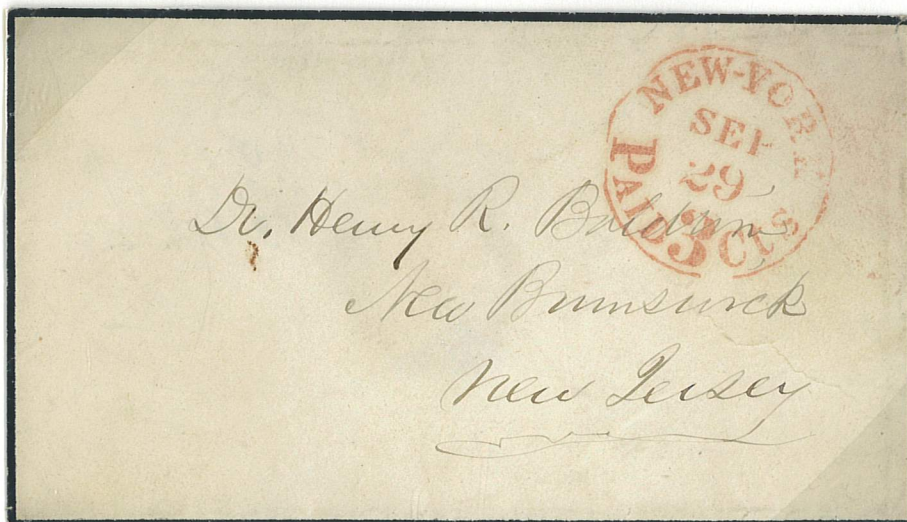 NEW-YORK
SEP
29
PAID 3 CTS
Dr. Henry R. Baldwin
New Brunswick
New Jersey